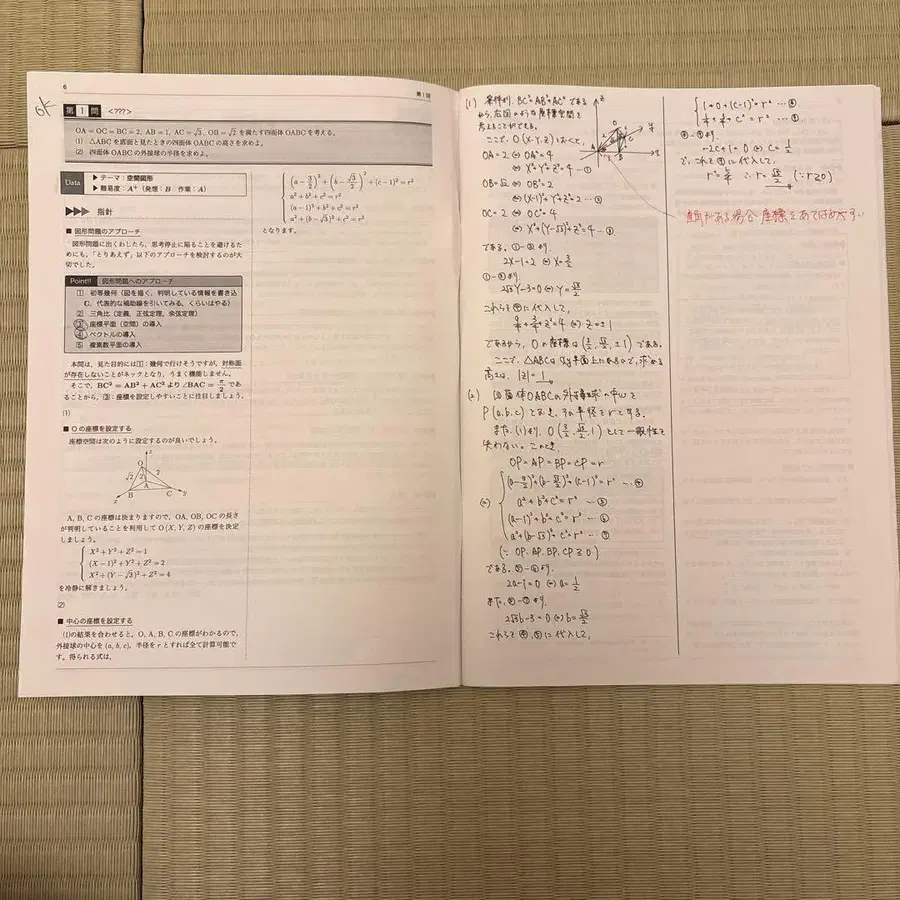 6
第1問
OK
第 1 問 <???>
OA = OC = BC = 2, AB = 1, AC = √3, OB = √2 を満たす四面体 OABC を考える。
(1) △ABC を底面と見たときの四面体 OABC の高さを求めよ。
(2) 四面体 OABC の外接球の半径を求めよ。
Data
▶ テーマ：空間図形
▶ 難易度：A⁺（発想：B 作業：A）
▶▶▶ 指針
■ 図形問題のアプローチ
図形問題に出くわしたら、思考停止に陥ることを避けるた
めにも、「とりあえず」以下のアプローチを検討するのが大
切でした。
Point!! 図形問題へのアプローチ
1 初等幾何（図を描く、判明している情報を書き込
む、代表的な補助線を引いてみる、くらいはやる）
2 三角比（定義、正弦定理、余弦定理）
3 座標平面（空間）の導入
4 ベクトルの導入
5 複素数平面の導入
本問は、見た目的には1：幾何で行けそうですが、対称面
が存在しないことがネックとなり、うまく機能しません。
そこで、BC² = AB² + AC² より ∠BAC = π/2 であ
ることから、3：座標を設定しやすいことに注目しましょう。
(1)
■ O の座標を設定する
座標空間は次のように設定するのが良いでしょう。
z
O
√2
2
2
B
A
C
x
y
A, B, C の座標は決まりますので、OA, OB, OC の長さ
が判明していることを利用して O (X, Y, Z) の座標を決定
しましょう。
X² + Y² + Z² = 1
(X − 1)² + Y² + Z² = 2
X² + (Y − √3)² + Z² = 4
を冷静に解きましょう。
(2)
■ 中心の座標を設定する
(1)の結果を合わせると、O, A, B, C の座標がわかるので、
外接球の中心を (a, b, c)、半径を r とすれば全て計算可能で
す。得られる式は、
(a − 3/2)² + (b − √3/2)² + (c − 1)² = r²
a² + b² + c² = r²
(a − 1)² + b² + c² = r²
a² + (b − √3)² + c² = r²
となります。
(1) 条件より、BC² = AB² + AC² である
から、右図のような座標空間を
考えることができる。
ここで、O(X, Y, Z) とおくと、
OA = 2 ⇔ OA² = 4
⇔ X² + Y² + Z² = 4 … ①
OB = √2 ⇔ OB² = 2
⇔ (X−1)² + Y² + Z² = 2 … ②
OC = 2 ⇔ OC² = 4
⇔ X² + (Y−√3)² + Z² = 4 … ③
である。①−②より、
2X−1 = 2 ⇔ X = 3/2
①−③より、
2√3Y−3 = 0 ⇔ Y = √3/2
これらを①に代入して、
9/4 + 3/4 + Z² = 4 ⇔ Z = ±1
であるから、O の座標は (3/2, √3/2, ±1) である。
ここで、△ABC は xy 平面上にあるので、求める
高さは、|Z| = 1
(2) 四面体OABCの外接球の中心を
P(a, b, c) とおき、その半径を r とする。
また、(1)より、O(3/2, √3/2, 1) として一般性を
失わない。このとき、
OP = AP = BP = CP = r
(a−3/2)² + (b−√3/2)² + (c−1)² = r² … ④
⇔ a² + b² + c² = r² … ⑤
(a−1)² + b² + c² = r² … ⑥
a² + (b−√3)² + c² = r² … ⑦
(∵ OP, AP, BP, CP ≧ 0)
である。⑤−⑥より、
2a−1 = 0 ⇔ a = 1/2
また、⑤−⑦より、
2√3b−3 = 0 ⇔ b = √3/2
これらを④, ⑤に代入して、
1 + 0 + (c−1)² = r² … ④
1/4 + 3/4 + c² = r² … ⑤
−2c+1 = 0 ⇔ c = 1/2
で、これを
に代入して、
r² = 5/4 ∴ r = √5/2 (∵ r ≧ 0)
直角がある場合 座標をあてはめやすい